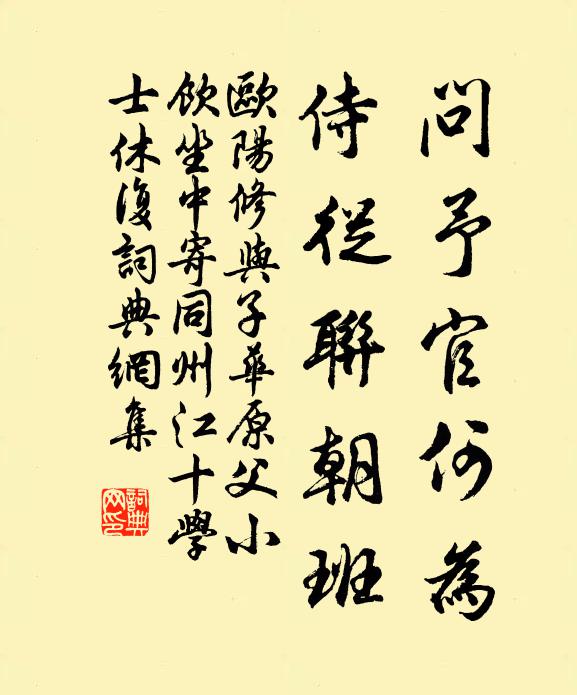 問予官何為
侍從聯朝班
歐陽修與子華原父小
飲坐中寄同州江十學
士休復詞典網集
詞典
网印